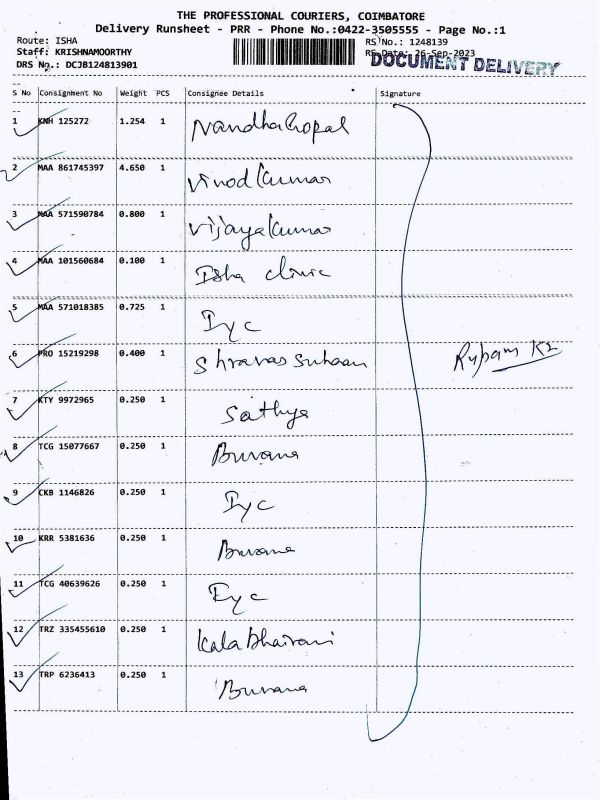 THE PROFESSIONAL COURIERS, COIMBATORE
Delivery Runsheet - PRR - Phone No.:0422-3505555 - Page No.:1
Route: ISHA RS No.: 1248139
Staff: KRISHNAMOORTHY RS Date: 26-Sep-2023
DOCUMENT DELIVERY
DRS No.: DCJB124813901
S No Consignment No Weight PCS Consignee Details Signature
1 KNH 125272 1.254 1 NandhaGopal
2 MAA 861745397 4.650 1 Vinod Kumar
3 MAA 571590784 0.800 1 Vijayakumar
4 MAA 101560684 0.100 1 Isha clinic
5 MAA 571018385 0.725 1 Iyc
6 PRO 15219298 0.400 1 Shravas Rupam
7 KTY 9972965 0.250 1 Sathya
8 TCG 15077667 0.250 1 Buvana
9 CKB 1146826 0.250 1 Iyc
10 KRR 5381636 0.250 1 Buvana
11 TCG 40639626 0.250 1 Iyc
12 TRZ 335455610 0.250 1 Kala Bhairavi
13 TRP 6236413 0.250 1 Buvana